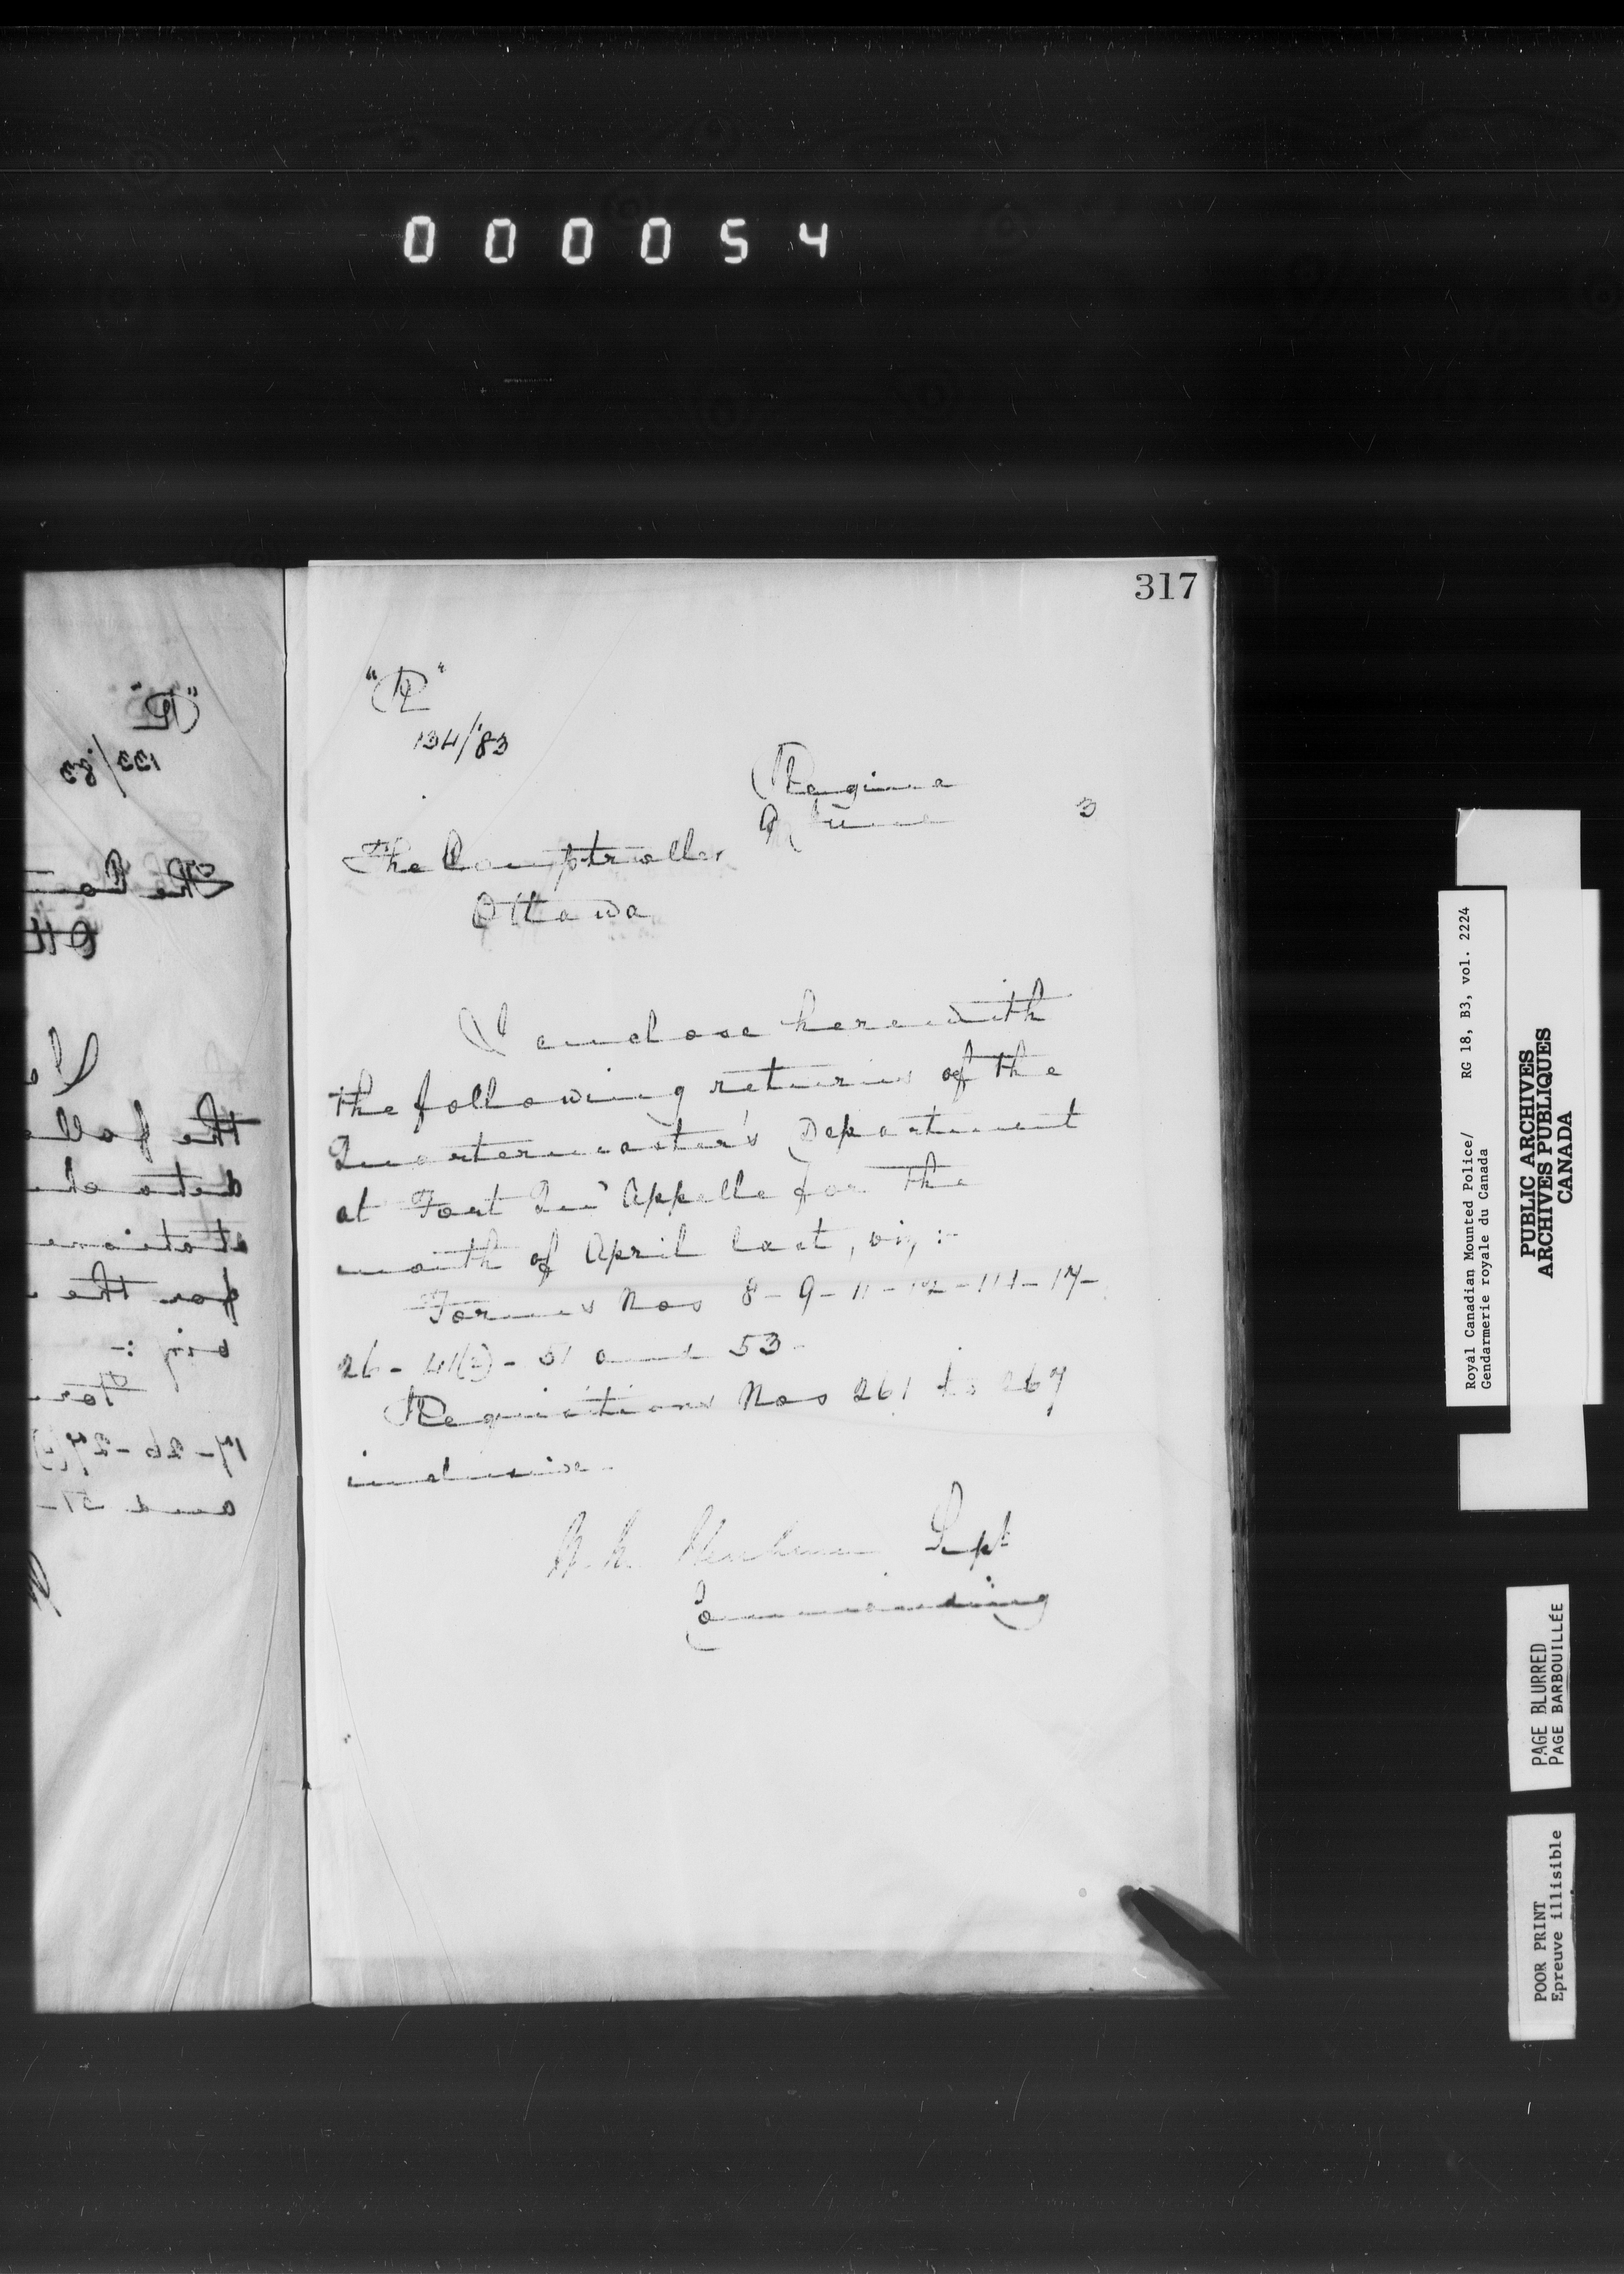 000054
317
"R"
134/83
Regina
June 3
The Comptroller
Ottawa
I enclose herewith
the following returns of the
Quartermaster's Department
at Fort Qu'Appelle for the
month of April last, viz :-
Forms Nos 8 - 9 - 11 - 12 - 14 - 17 -
26 - 41(2) - 51 and 53 -
Requisitions Nos 261 to 267
inclusive.
Supt
Commanding
"R"
133/83
The Co
Ott
I e
the follo
for the
viz :-
For
17 - 26 - 27(2)
and 51 -
Royal Canadian Mounted Police/ RG 18, B3, vol. 2224
Gendarmerie royale du Canada
PUBLIC ARCHIVES
ARCHIVES PUBLIQUES
CANADA
PAGE BLURRED
PAGE BARBOUILLÉE
POOR PRINT
Epreuve illisible